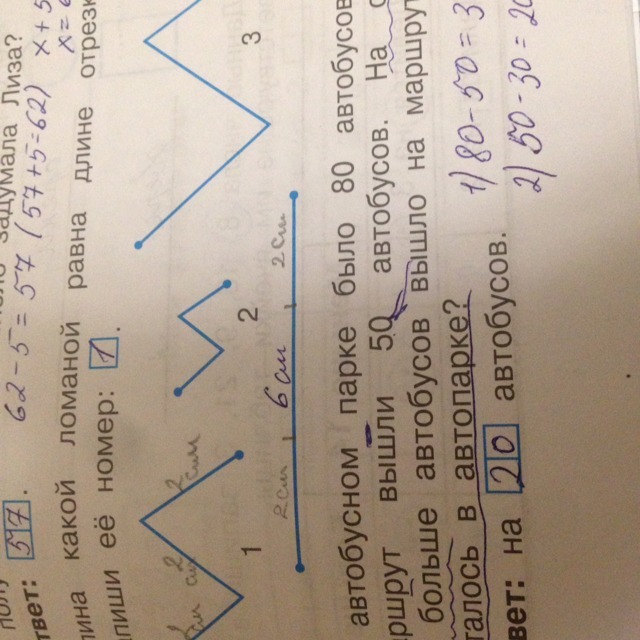 задумала Лиза?
62-5=57 (57+5=62) x+5
ответ: 57.
x=6
какой ломаной равна длине отрезка
её номер: 1.
2 см
1
2
3
2 см
6 см
2 см
автобусном парке было 80 автобусов
вышли 50 автобусов. На
больше автобусов вышло на маршрут
осталось в автопарке?
1) 80-50=3
2) 50-30=20
ответ: на 20 автобусов.